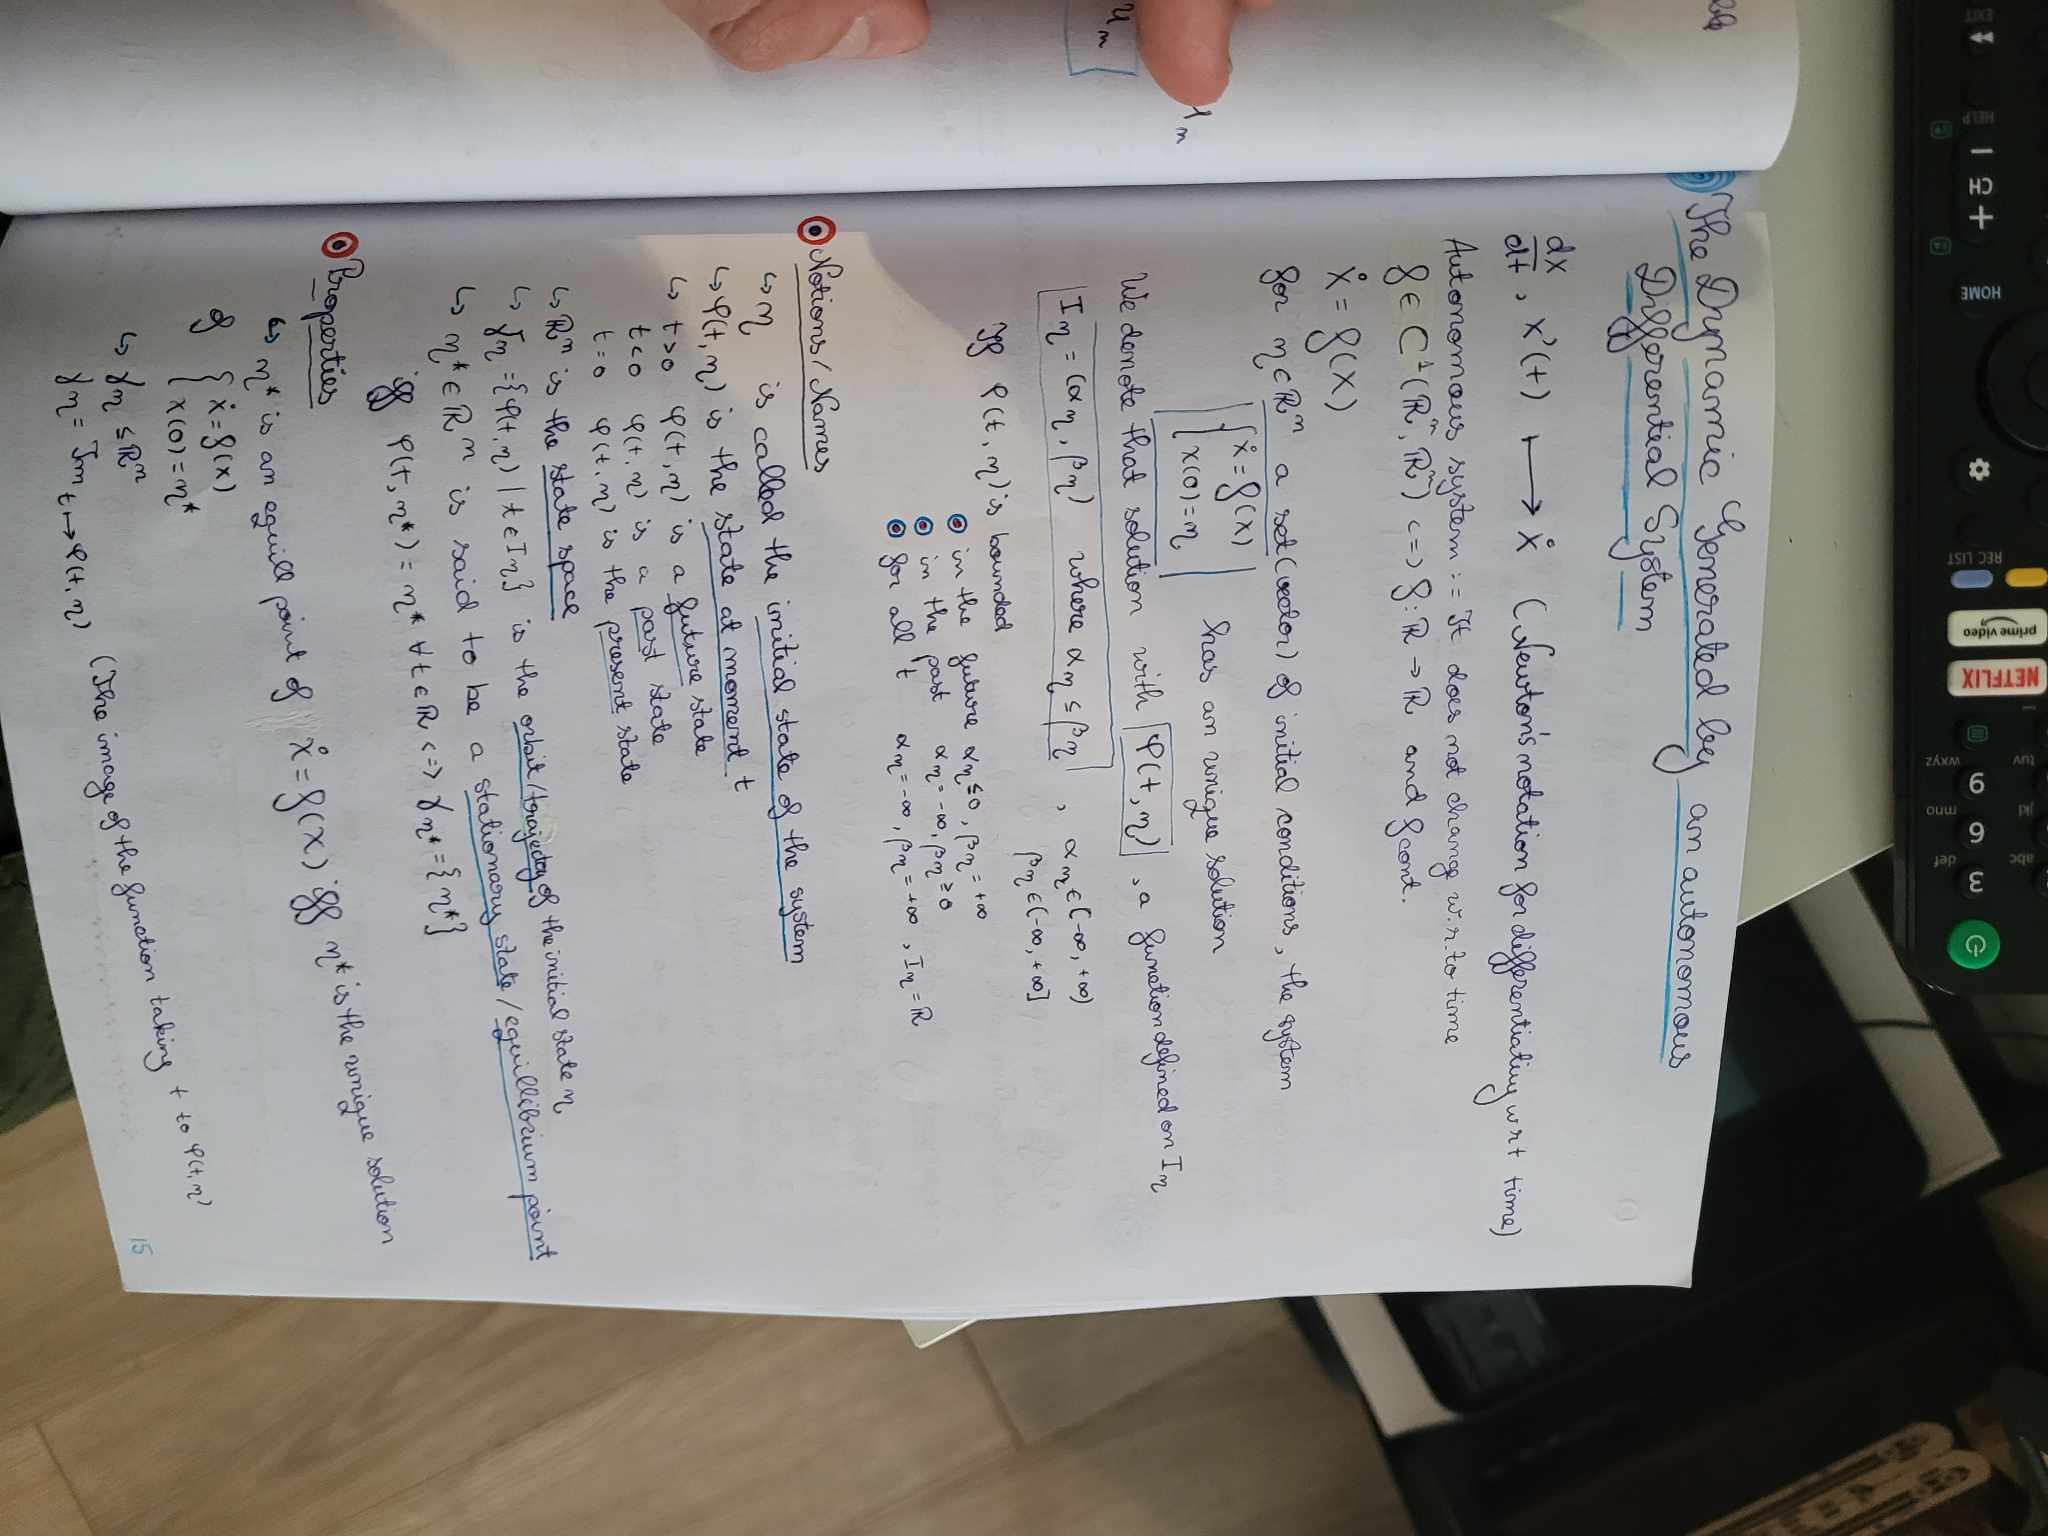 The Dynamic Generated by an autonomous
Differential System
dx/dt, x'(t) ⟼ ẋ (Newton's notation for differentiating w r t time)
Autonomous system := It does not change w.r.to time
f ∈ C¹(ℝⁿ, ℝⁿ) <=> f: ℝ → ℝ and f cont.
ẋ = f(x)
for η ∈ ℝⁿ a set (vector) of initial conditions, the system
{ ẋ = f(x)
x(0) = η has an unique solution
We denote that solution with φ(t, η), a function defined on Iη
Iη = (αη, βη) where αη ≤ βη, αη ∈ (-∞, +∞)
βη ∈ (-∞, +∞]
If φ(t, η) is bounded
in the future αη ≤ 0, βη = +∞
in the past αη = -∞, βη ≥ 0
for all t αη = -∞, βη = +∞, Iη = ℝ
Notions/Names
↳ η is called the initial state of the system
↳ φ(t, η) is the state at moment t
↳ t>0 φ(t, η) is a future state
t<0 φ(t, η) is a past state
t=0 φ(t, η) is the present state
↳ ℝⁿ is the state space
↳ γη = {φ(t, η) | t ∈ Iη} is the orbit/trajectory of the initial state η
↳ η* ∈ ℝⁿ is said to be a stationary state/equillibrium point
iff φ(t, η*) = η* ∀t ∈ ℝ <=> γη* = {η*}
Properties
↳ η* is an equill point of ẋ = f(x) iff η* is the unique solution
of { ẋ = f(x)
x(0) = η*
↳ γη ⊆ ℝⁿ
γη = Im t ↦ φ(t, η) (The image of the function taking t to φ(t, η)
15
un
n
EXIT
HELP
CH
HOME
REC LIST
prime video
NETFLIX
wxyz
9
tuv
mno
6
jkl
def
3
abc